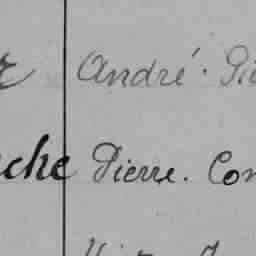 André. Pie
che Pierre. Con